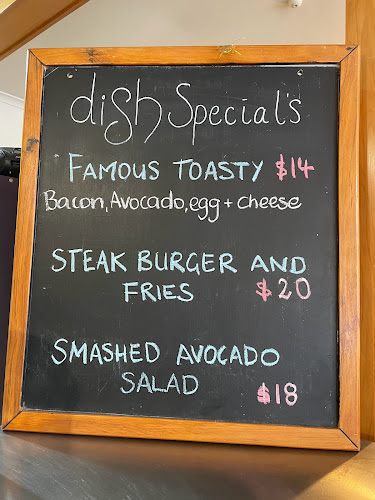 dish Special's
FAMOUS TOASTY $14
Bacon, Avocado, egg + cheese
STEAK BURGER AND
FRIES $20
SMASHED AVOCADO
SALAD $18